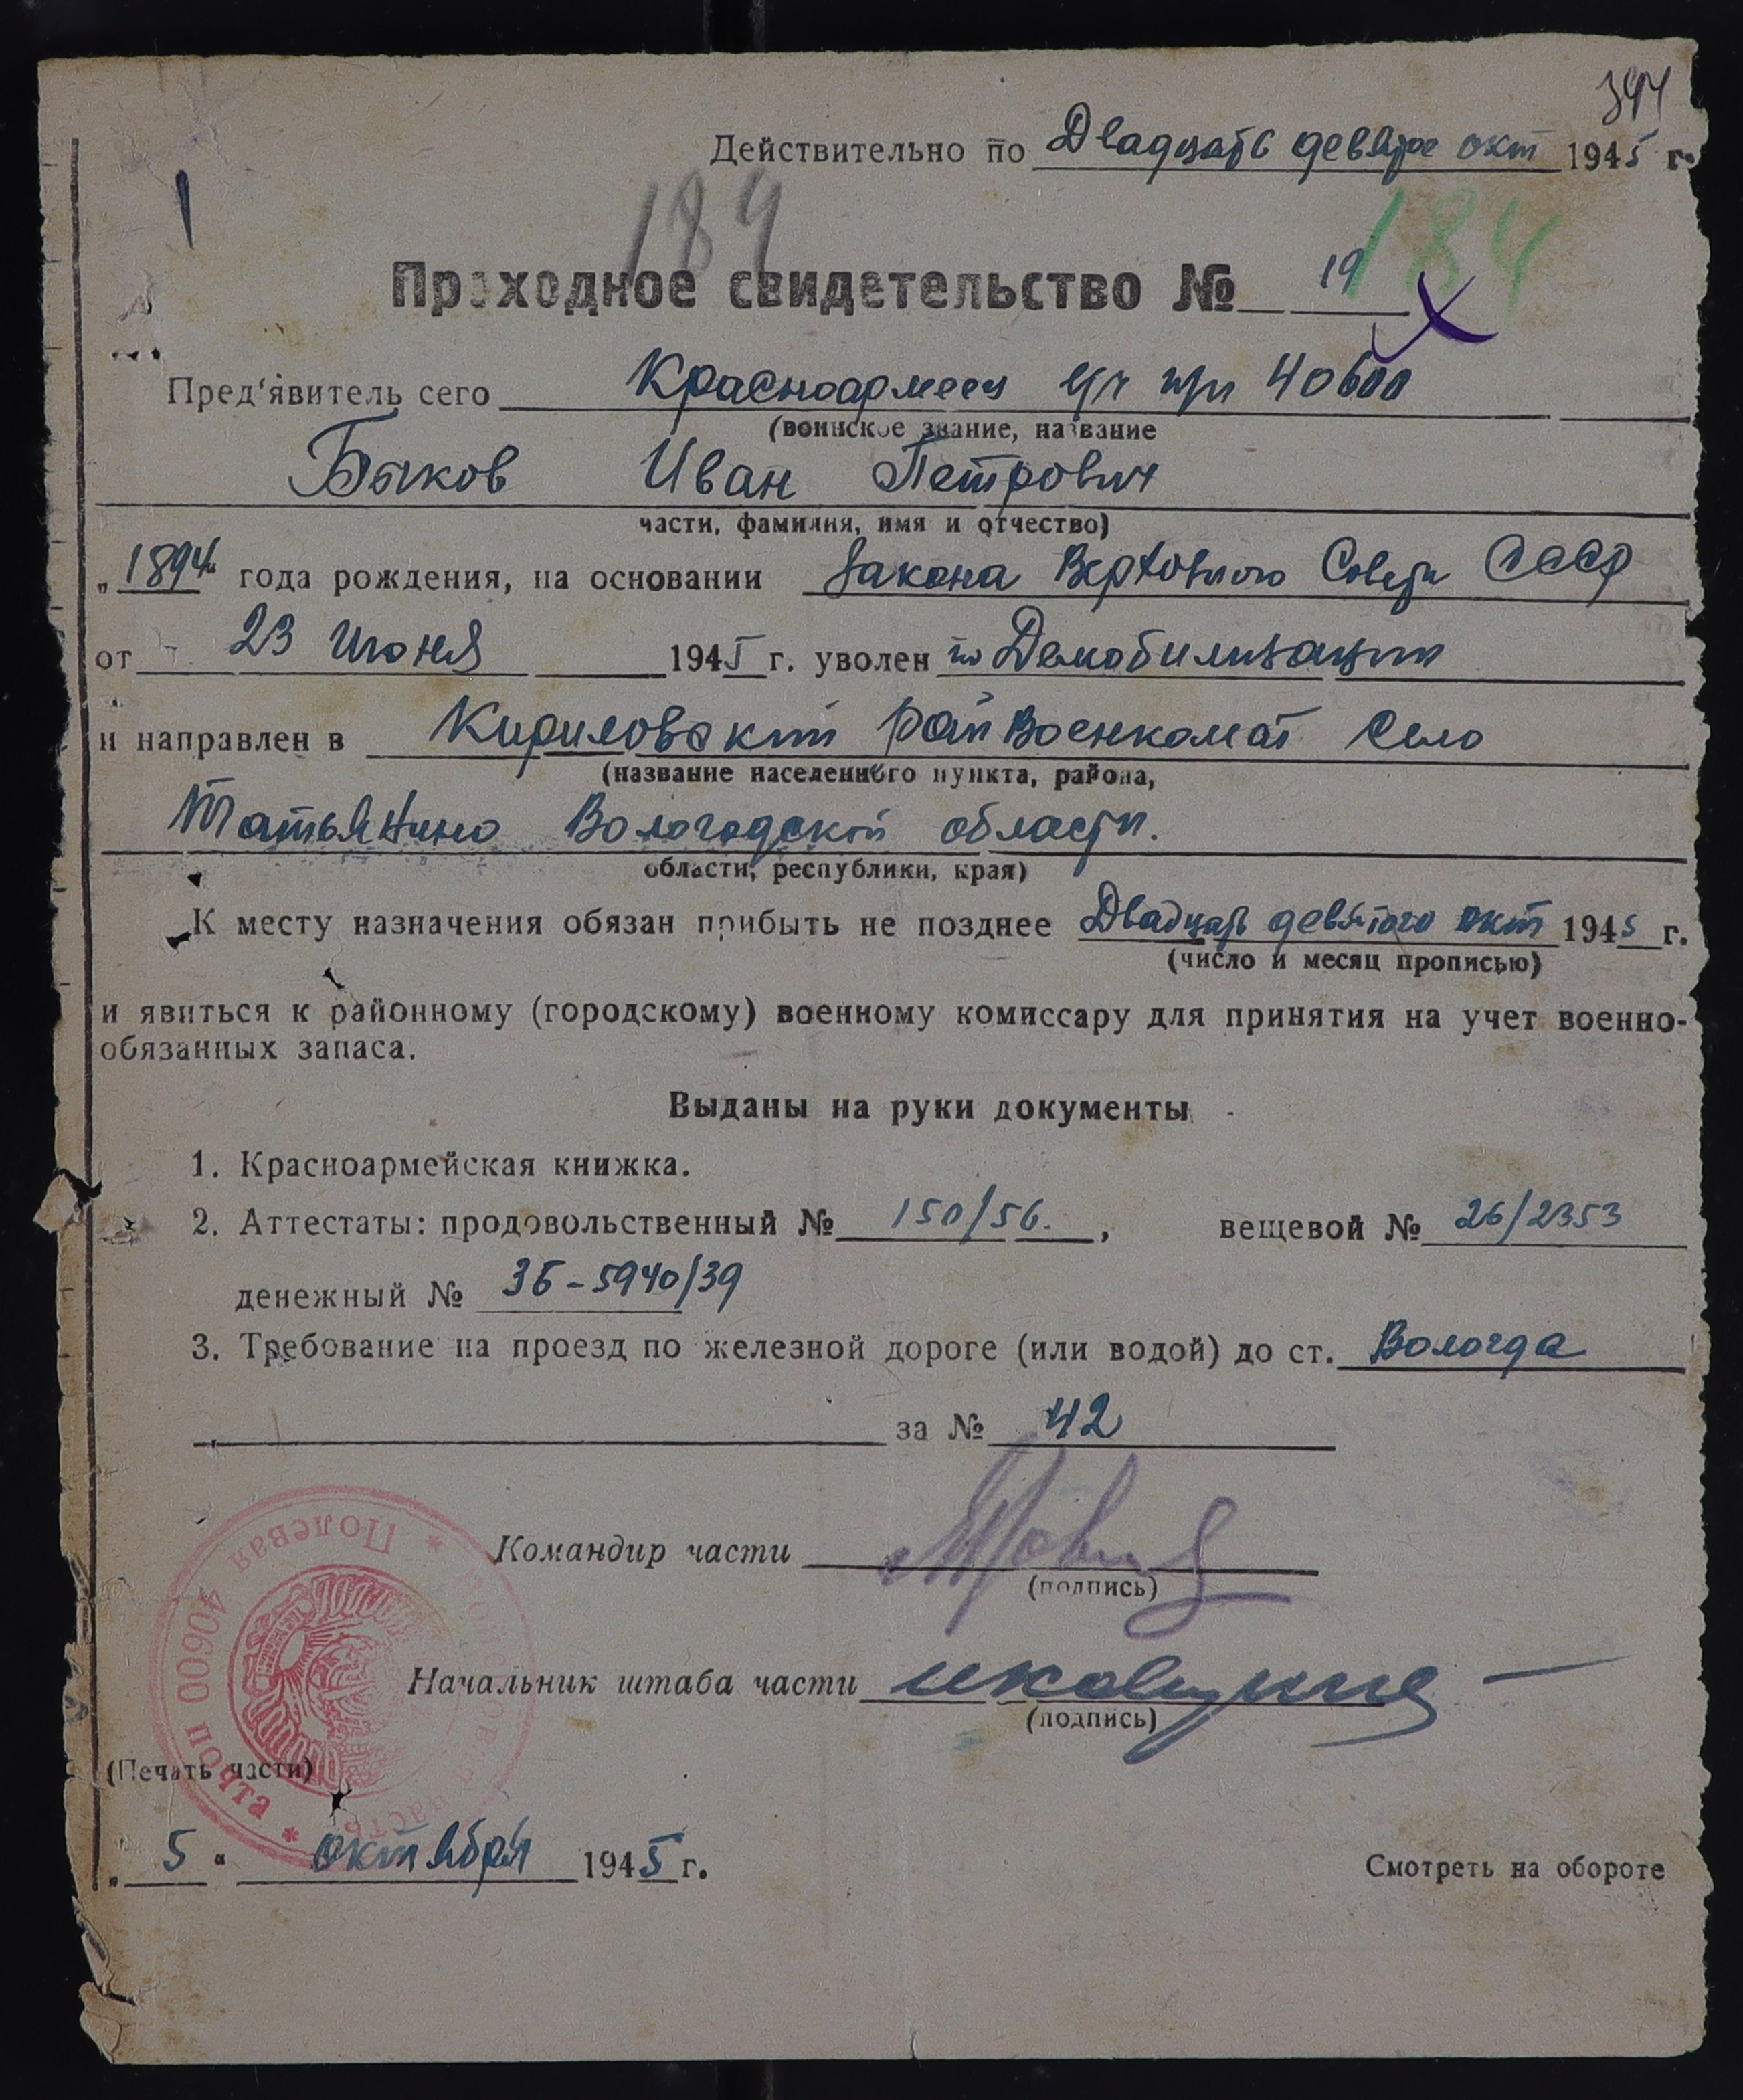 394
Действительно по Двадцать девятое окт 1945 г.
184
184
Проходное свидетельство № 19
Пред'явитель сего Красноармеец в/ч п/п 40600
(воинское звание, название
Быков Иван Петрович
части, фамилия, имя и отчество)
„1894" года рождения, на основании Закона Верховного Совета СССР
от 23 Июня 1945 г. уволен по Демобилизации
и направлен в Кириловский райвоенкомат Село
(название населенного пункта, района,
Татьянино Вологодской области.
области, республики, края)
К месту назначения обязан прибыть не позднее Двадцать девятого окт 1945 г.
(число и месяц прописью)
и явиться к районному (городскому) военному комиссару для принятия на учет военно-
обязанных запаса.
Выданы на руки документы
1. Красноармейская книжка.
2. Аттестаты: продовольственный № 150/56. , вещевой № 26/2353
денежный № 3Б-5940/39
3. Требование на проезд по железной дороге (или водой) до ст. Вологда
за № 42
Командир части
(подпись)
Начальник штаба части
(подпись)
* Полевая почта 40600 *
(Печать части)
„ 5 " октября 1945 г.
Смотреть на обороте